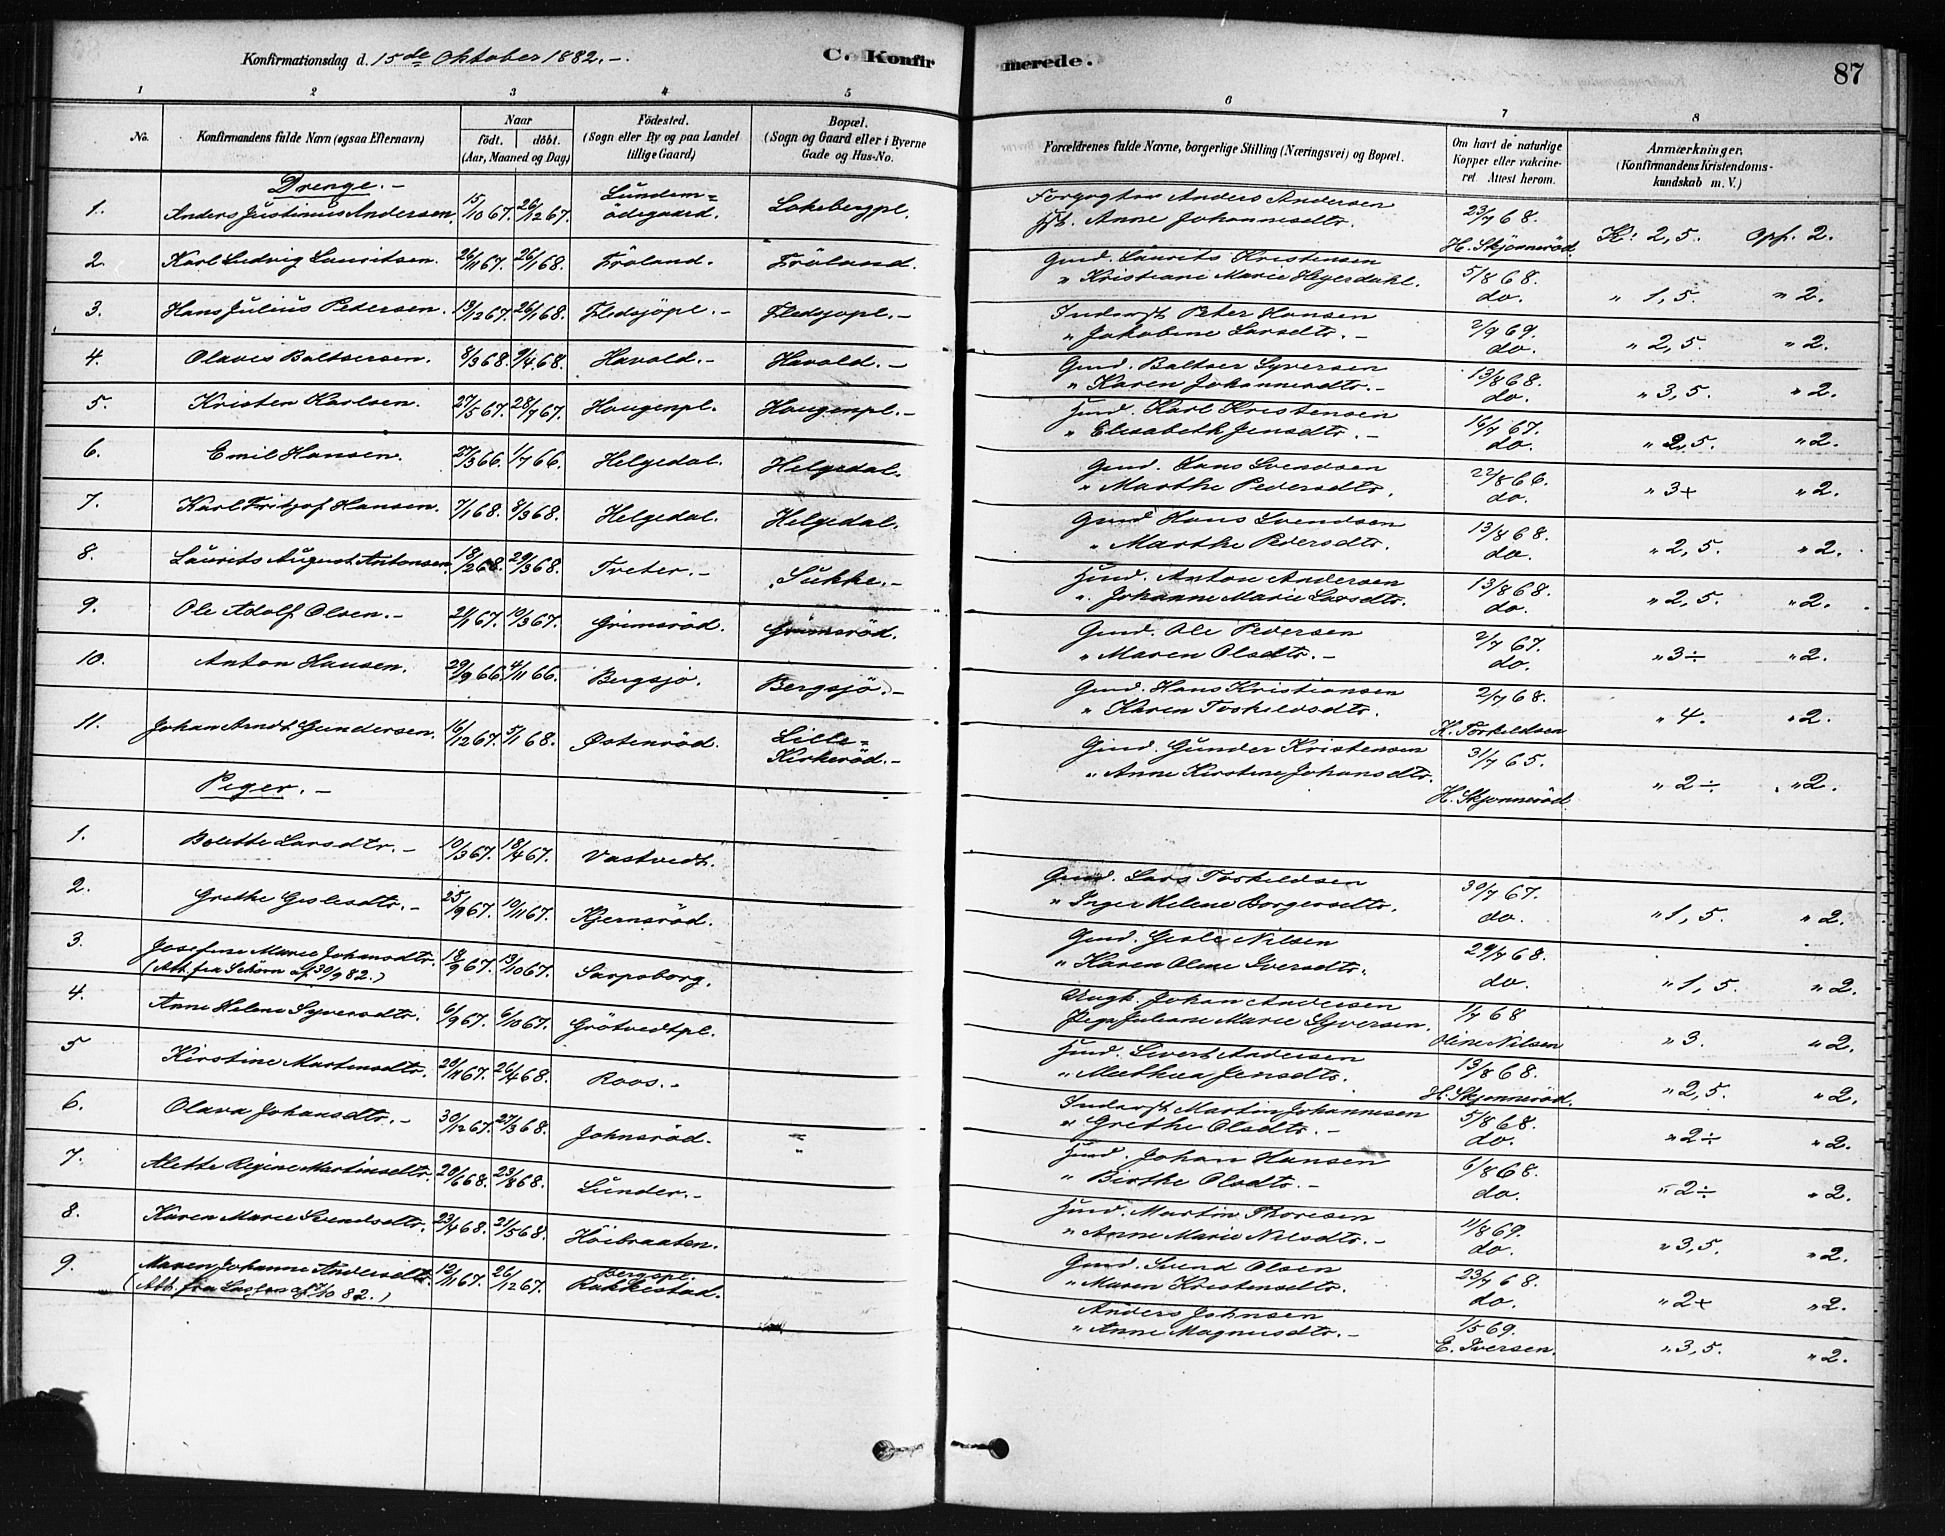 Konfirmationsdag d. 15de Oktober 1882.-
C. Konfirmerede.
87
1 2 3 4 5 6 7 8
No. Konfirmandens fulde Navn (ogsaa Efternavn) Naar födt. döbt. (Aar, Maaned og Dag) Födested. (Sogn eller By og paa Landet tillige Gaard) Bopæl. (Sogn og Gaard eller i Byerne Gade og Hus-No. Forældrenes fulde Navne, borgerlige Stilling (Næringsvei) og Bopæl. Om havt de naturlige Kopper eller vakcineret. Attest herom. Anmærkninger. (Konfirmandens Kristendomskundskab m. V.)
Drenge.-
1. Anders Justinius Andersen. 15/10 67. 26/12 67. Lundemödegaard. Lokebergpl. Anders Andersen
Anne Johannesdtr. 23/7 68. H. Skjönneröd. K: 2,5. Opf. 2.
2. Karl Ludvig Lauritsen. 26/11 67. 26/1 68. Fröland. Fröland. Gmd. Laurits Kristensen
" Kristiane Marie Heyerdahl. 5/8 68. do. " 1,5. " 2.
3. Hans Julius Petersen. 13/12 67. 26/1 68. Fledsjöpl.- Fledsjöpl.- Inderst Peter Hansen
" Jakobine Larsdtr.- 2/9 69. do. " 2,5. " 2.
4. Olavis Baltsersen. 8/3 68. 9/4 68. Havold.- Havold.- Gmd. Baltser Syversen
" Karen Johannesdtr.- 13/8 68. do. " 3,5. " 2.
5. Kristen Karlsen. 27/5 67. 28/7 67. Haugenpl. Haugenpl.- Hmd. Karl Kristensen
" Elisabeth Jensdtr.- 16/7 67. do. " 2,5. " 2.
6. Emil Hansen. 27/3 66. 1/7 66. Helgedal. Helgedal. Gmd. Hans Svendsen
" Marthe Pedersdtr. 22/8 66. do. " 3+ " 2.
7. Karl Fritjof Hansen. 7/1 68. 8/3 68. Helgedal. Helgedal. Gmd Hans Svendsen
" Marthe Pedersdtr. 13/8 68. do. " 2,5. " 2.
8. Laurits August Antonsen. 18/2 68. 29/3 68. Tveter.- Sukke.- Hmd. Anton Andersen
" Johanne Marie Larsdtr. 13/8 68. do. " 2,5. " 2.
9. Ole Adolf Olsen.- 21/1 67. 10/3 67. Grimsröd. Grimsröd. Gmd. Ole Pedersen
" Maren Olsdtr.- 2/7 67. do. " 3÷ " 2.
10. Anton Hansen. 29/9 66. 4/11 66. Bergsjö. Bergsjö.- Gmd. Hans Kristiansen
" Karen Torkildsdtr. 2/7 68. K. Torkildsen " 4. " 2.
11. Johan Arndt Gundersen. 16/12 67. 5/1 68. Østenröd. Lille-Kirkeröd.- Gmd. Gunder Kristensen
" Anne Kirstine Johansdtr. 31/7 65. H. Skjönneröd " 2÷ " 2.
Piger.-
1. Bolette Larsdtr.- 10/3 67. 18/4 67. Vastvedt. Gmd. Lars Torkildsen
" Inger Helene Borgersdtr. 30/7 67. do. " 1,5. " 2.
2. Grethe Gislesdtr.- 25/9 67. 10/11 67. Kjernsröd. Gmd. Gisle Nilsen
" Karen Oline Iversdtr. 29/7 68. do. " 1,5. " 2.
3. Josefine Marie Johansdtr. 18/9 67. 13/10 67. Sarpsborg. Ungk. Johan Andersen
(Att. fra af 30/9 82.) Pige Juliane Marie Syversen. 1/7 68 Oline Nilsen " 3. " 2.
4. Anne Helene Syversdtr. 6/9 67. 6/10 67. Grötvedtpl. Hmd. Sivert Andersen
" Mathea Jensdtr. 13/8 68. H. Skjönneröd. " 2,5. " 2.
5 Kirstine Martinsdtr. 20/11 67. 26/4 68. Roos.- Inderst Martin Johannesen
" Grethe Olsdtr.- 5/8 68. do. " 2÷ " 2.
6. Olava Johansdtr.- 30/12 67. 27/3 68. Johnsröd. Hmd. Johan Hansen
" Birthe Olsdtr.- 6/8 68. do. " 2÷ " 2.
7. Alette Regine Martinsdtr. 28/6 68. 23/8 68. Lunder.- Hmd. Martin Thoresen
" Anne Marie Nilsdtr.- 11/8 69. do. " 3,5. " 2.
8. Karen Marie Svendsdtr. 23/4 68. 21/5 68. Höibraaten. Gmd. Svend Olsen
" Maren Kristensdtr. 23/7 68. do. " 2+ " 2.
9. Maren Johanne Andersdtr. 12/11 67. 26/12 67. Bergspl. Rakkestad. Anders Johnsen
(Att. fra af 7/10 82.) " Anne Magnusdtr.- 1/5 69. E. Iversen. " 3,5. " 2.